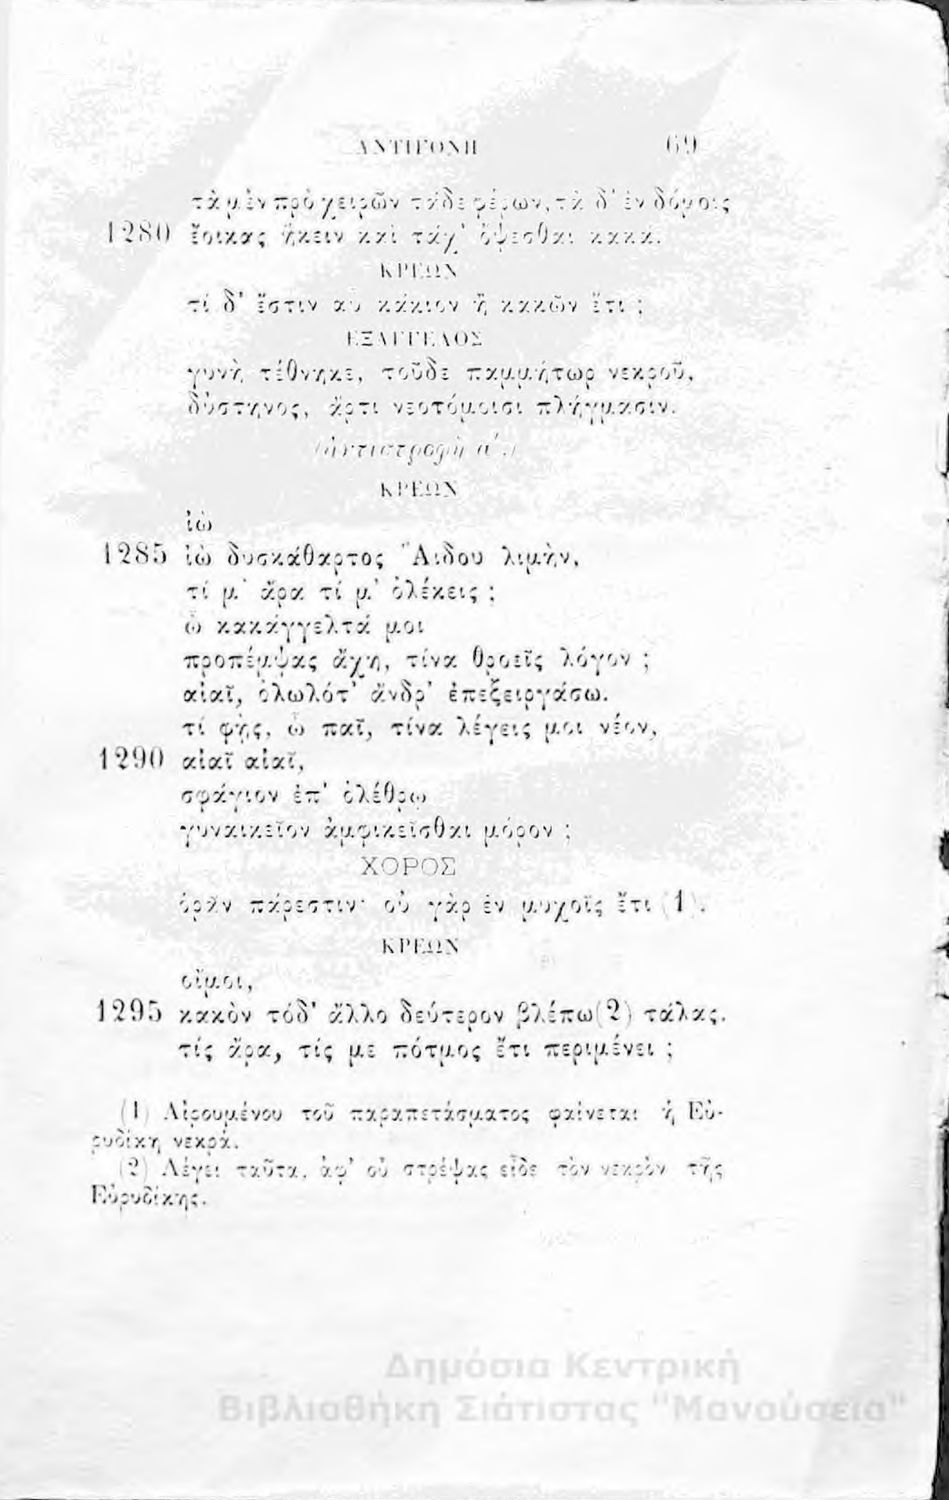 ΑΝΤΙΓΟΝΗ 69
τὰ μὲν πρὸ χειρῶν τάδε φέρων, τὰ δ' ἐν δόμοις
1280 ἔοικας ἥκειν καὶ τάχ' ὄψεσθαι κακά.
ΚΡΕΩΝ
τί δ' ἔστιν αὖ κάκιον ἢ κακῶν ἔτι ;
ΕΞΑΓΓΕΛΟΣ
γυνὴ τέθνηκε, τοῦδε παμμήτωρ νεκροῦ,
δύστηνος, ἄρτι νεοτόμοισι πλήγμασιν.
(ἀντιστροφὴ α'.)
ΚΡΕΩΝ
ἰὼ
1285 ἰὼ δυσκάθαρτος Ἅιδου λιμήν,
τί μ' ἄρα τί μ' ὀλέκεις ;
ὦ κακάγγελτά μοι
προπέμψας ἄχη, τίνα θροεῖς λόγον ;
αἰαῖ, ὀλωλότ' ἄνδρ' ἐπεξειργάσω.
τί φῄς, ὦ παῖ, τίνα λέγεις μοι νέον,
1290 αἰαῖ αἰαῖ,
σφάγιον ἐπ' ὀλέθρῳ
γυναικεῖον ἀμφικεῖσθαι μόρον ;
ΧΟΡΟΣ
ὁρᾶν πάρεστιν· οὐ γὰρ ἐν μυχοῖς ἔτι (1).
ΚΡΕΩΝ
οἴμοι,
1295 κακὸν τόδ' ἄλλο δεύτερον βλέπω(2) τάλας.
τίς ἄρα, τίς με πότμος ἔτι περιμένει ;
(1) Αἰρουμένου τοῦ παραπετάσματος φαίνεται ἡ Εὐ-
ρυδίκη νεκρά.
(2) Λέγει ταῦτα, ἀφ' οὗ στρέψας εἶδε τὸν νεκρὸν τῆς
Εὐρυδίκης.
Δημόσια Κεντρική
Βιβλιοθήκη Σιάτιστας "Μανούσεια"